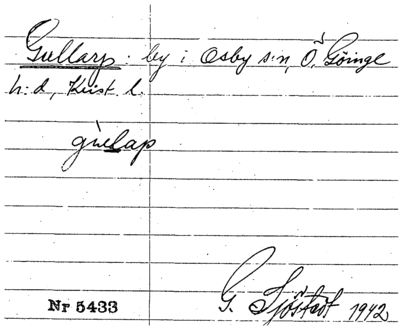 Gullarp. by i Osby s:n, Ö. Göinge
h:d, Krist. l.
gùlap
Nr 5433
G. Sjöstedt 1942